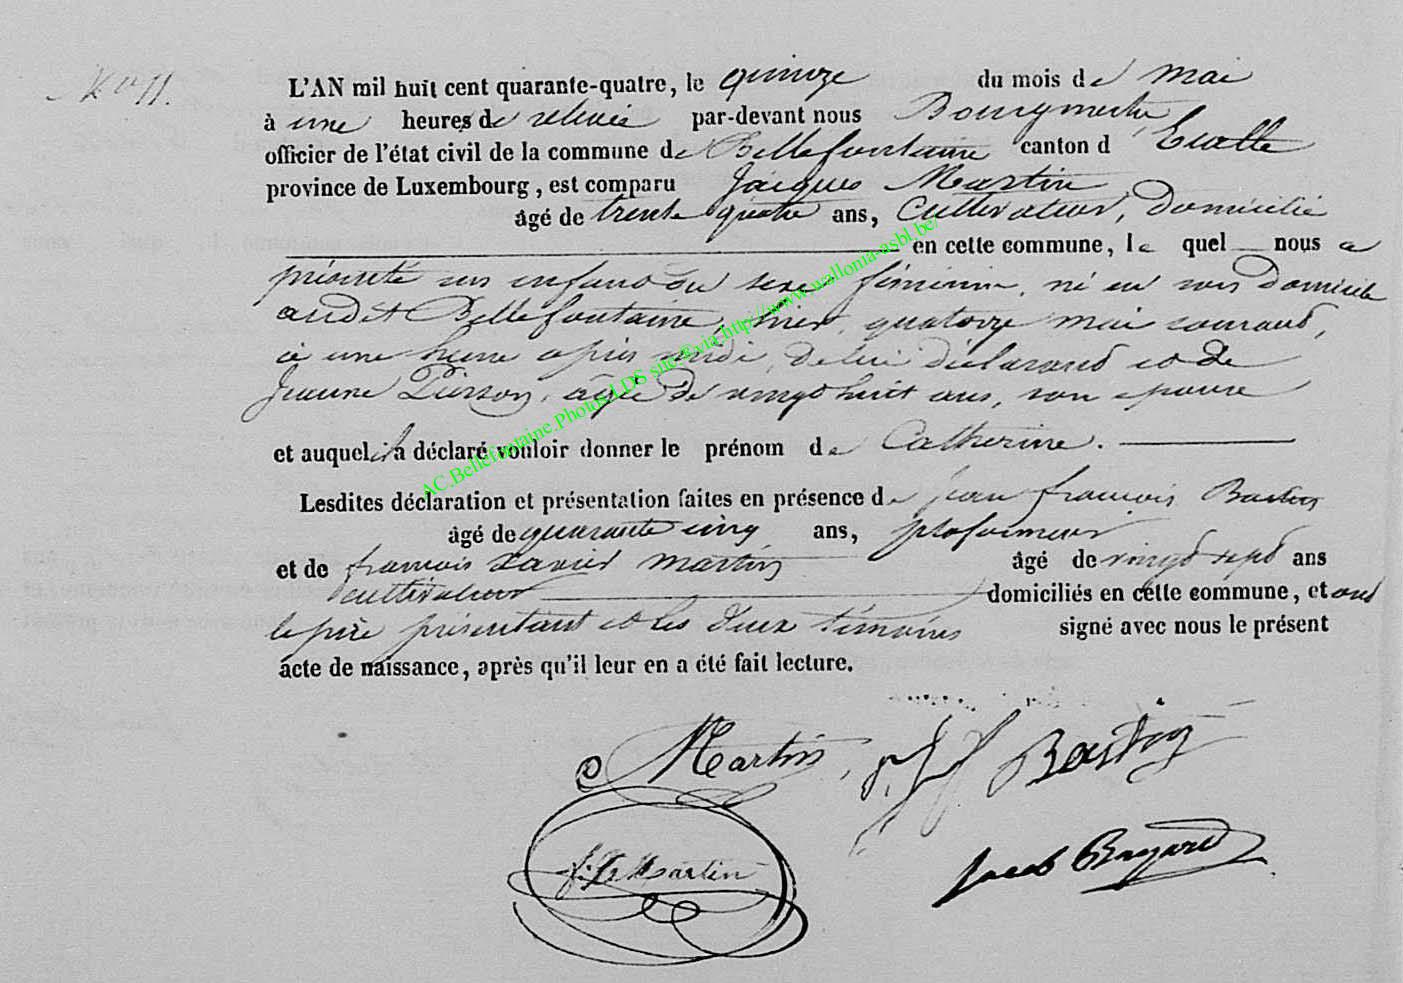 N° 11.
L'AN mil huit cent quarante-quatre, le quinze du mois de mai
à une heures de relevée par-devant nous Bourgmestre
officier de l'état civil de la commune de Bellefontaine canton d'Etalle
province de Luxembourg, est comparu Jacques Martin
âgé de trente quatre ans, Cultivateur, domicilié
en cette commune, le quel nous a
présenté un enfant du sexe féminin, né en son domicile
audit Bellefontaine, hier, quatorze mai courant,
à une heure après midi, de lui déclarant et de
Jeanne Pierson, âgée de vingt huit ans, son épouse
et auquel il a déclaré vouloir donner le prénom de Catherine.
Lesdites déclaration et présentation faites en présence de jean françois Bastin
âgé de quarante cinq ans,
et de françois xavier martin âgé de vingt sept ans
cultivateur domiciliés en cette commune, et ont
le père présentant et les deux témoins signé avec nous le présent
acte de naissance, après qu'il leur en a été fait lecture.
Martin, J. f Bastin
f. X Martin Jacob Bayard
AC.Bellefontaine.Photos.LDS site©via http://www.wallonia-asbl.be/